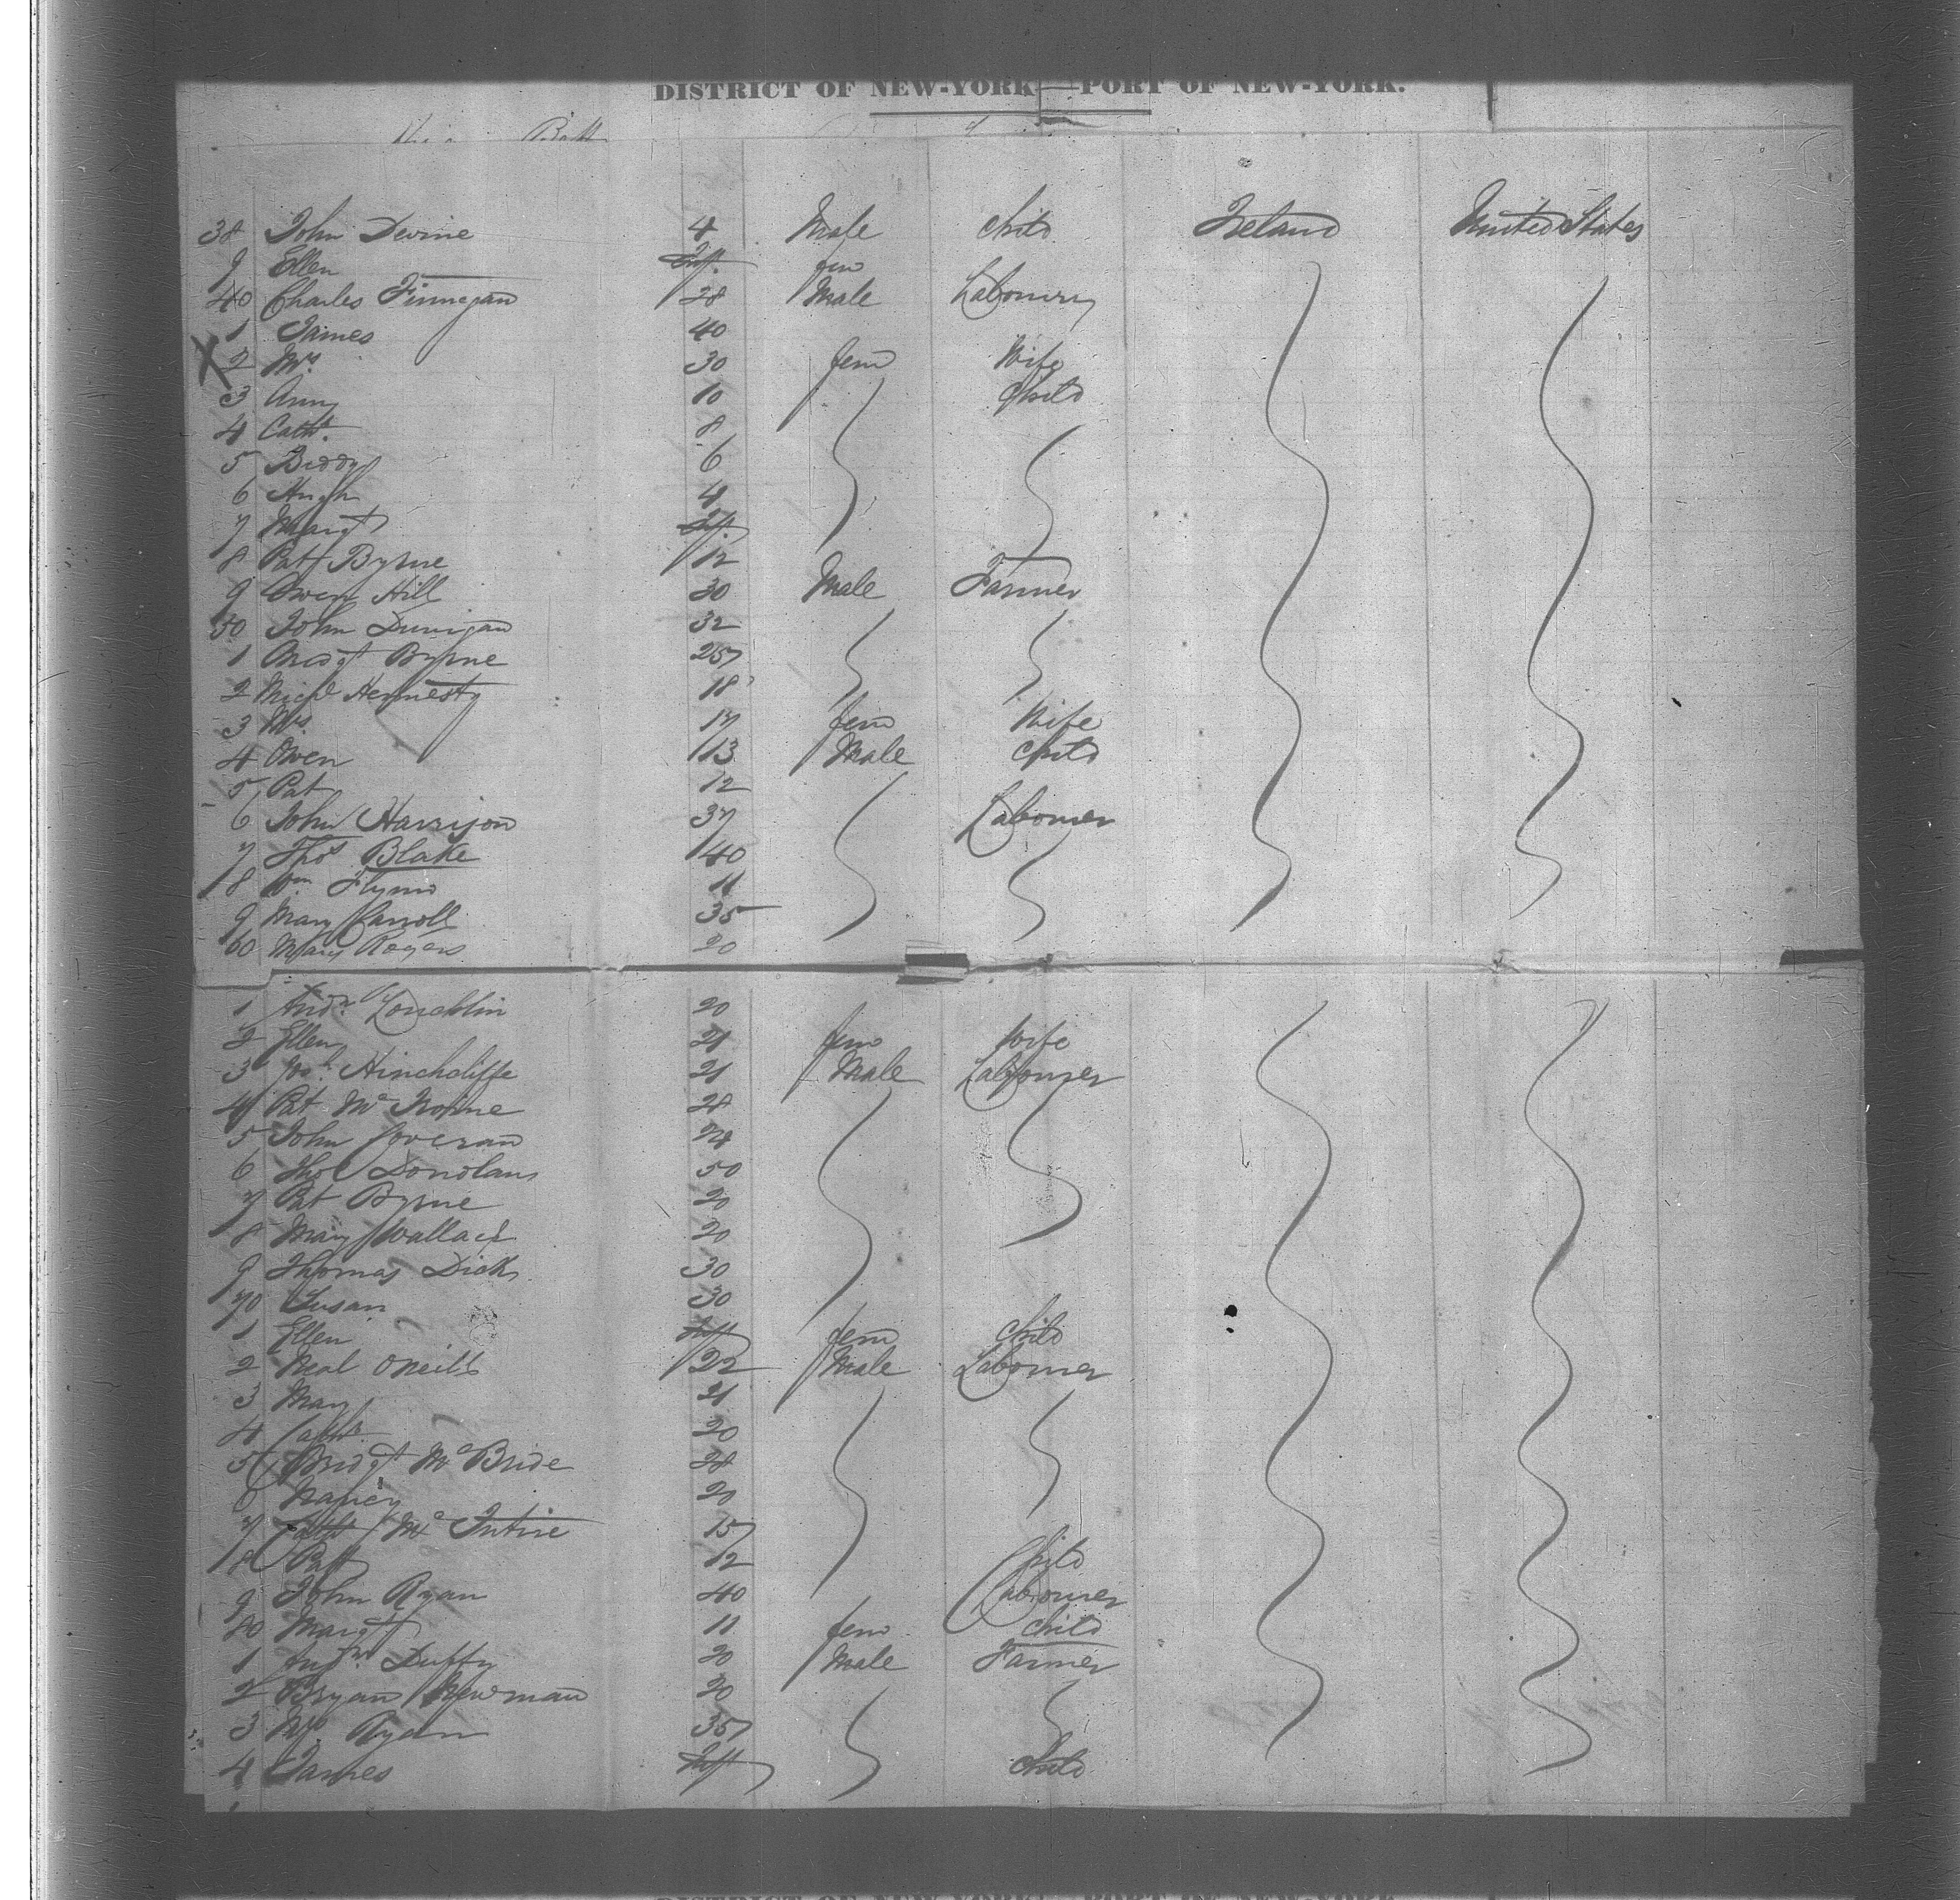 DISTRICT OF NEW-YORK—PORT OF NEW-YORK.
38 John Devine 4 Male Child Ireland United States
9 Ellen Inf. fem
40 Charles Finnegan 28 Male Labourer
1 James 40
X 2 Mrs 30 fem Wife
3 Ann 10 Child
4 Cath. 8
5 Biddy 6
6 Hugh 4
7 Margt Inf.
8 Pat Byrne 12
9 Owen Hill 30 Male Farmer
50 John Dunigan 32
1 Byrne 25
2 Michl Hennesty 18
3 Mrs. 17 fem Wife
4 Owen 13 Male Child
5 Pat 12
6 John Harrison 37 Labourer
7 Thos Blake 40
8 Wm Flynn 11
9 Mary Carroll 35
60 Mary Rogers 20
1 Andw Loughlin 20
2 Ellen 21 fem Wife
3 Jos. Hinchcliffe 21 Male Labourer
4 Pat Mc 28
5 John 24
6 Thos Donolan 50
7 Pat Byrne 20
8 Mary Wallace 20
9 Thomas Dick 30
70 Susan 30
1 Ellen Inft fem Child
2 Neal ONeill 22 Male Labourer
3 Mary 21
4 Cath. 20
5 Bridgt McBride 28
6 Nancy 20
7 Cath Mc Intire 15
8 Patt 12 Child
9 John Ryan 40 Labourer
80 Margt 11 fem Child
1 Duffy 20 Male Farmer
2 Bryan Newman 20
3 Mrs. Ryan 35
4 James Inft Child